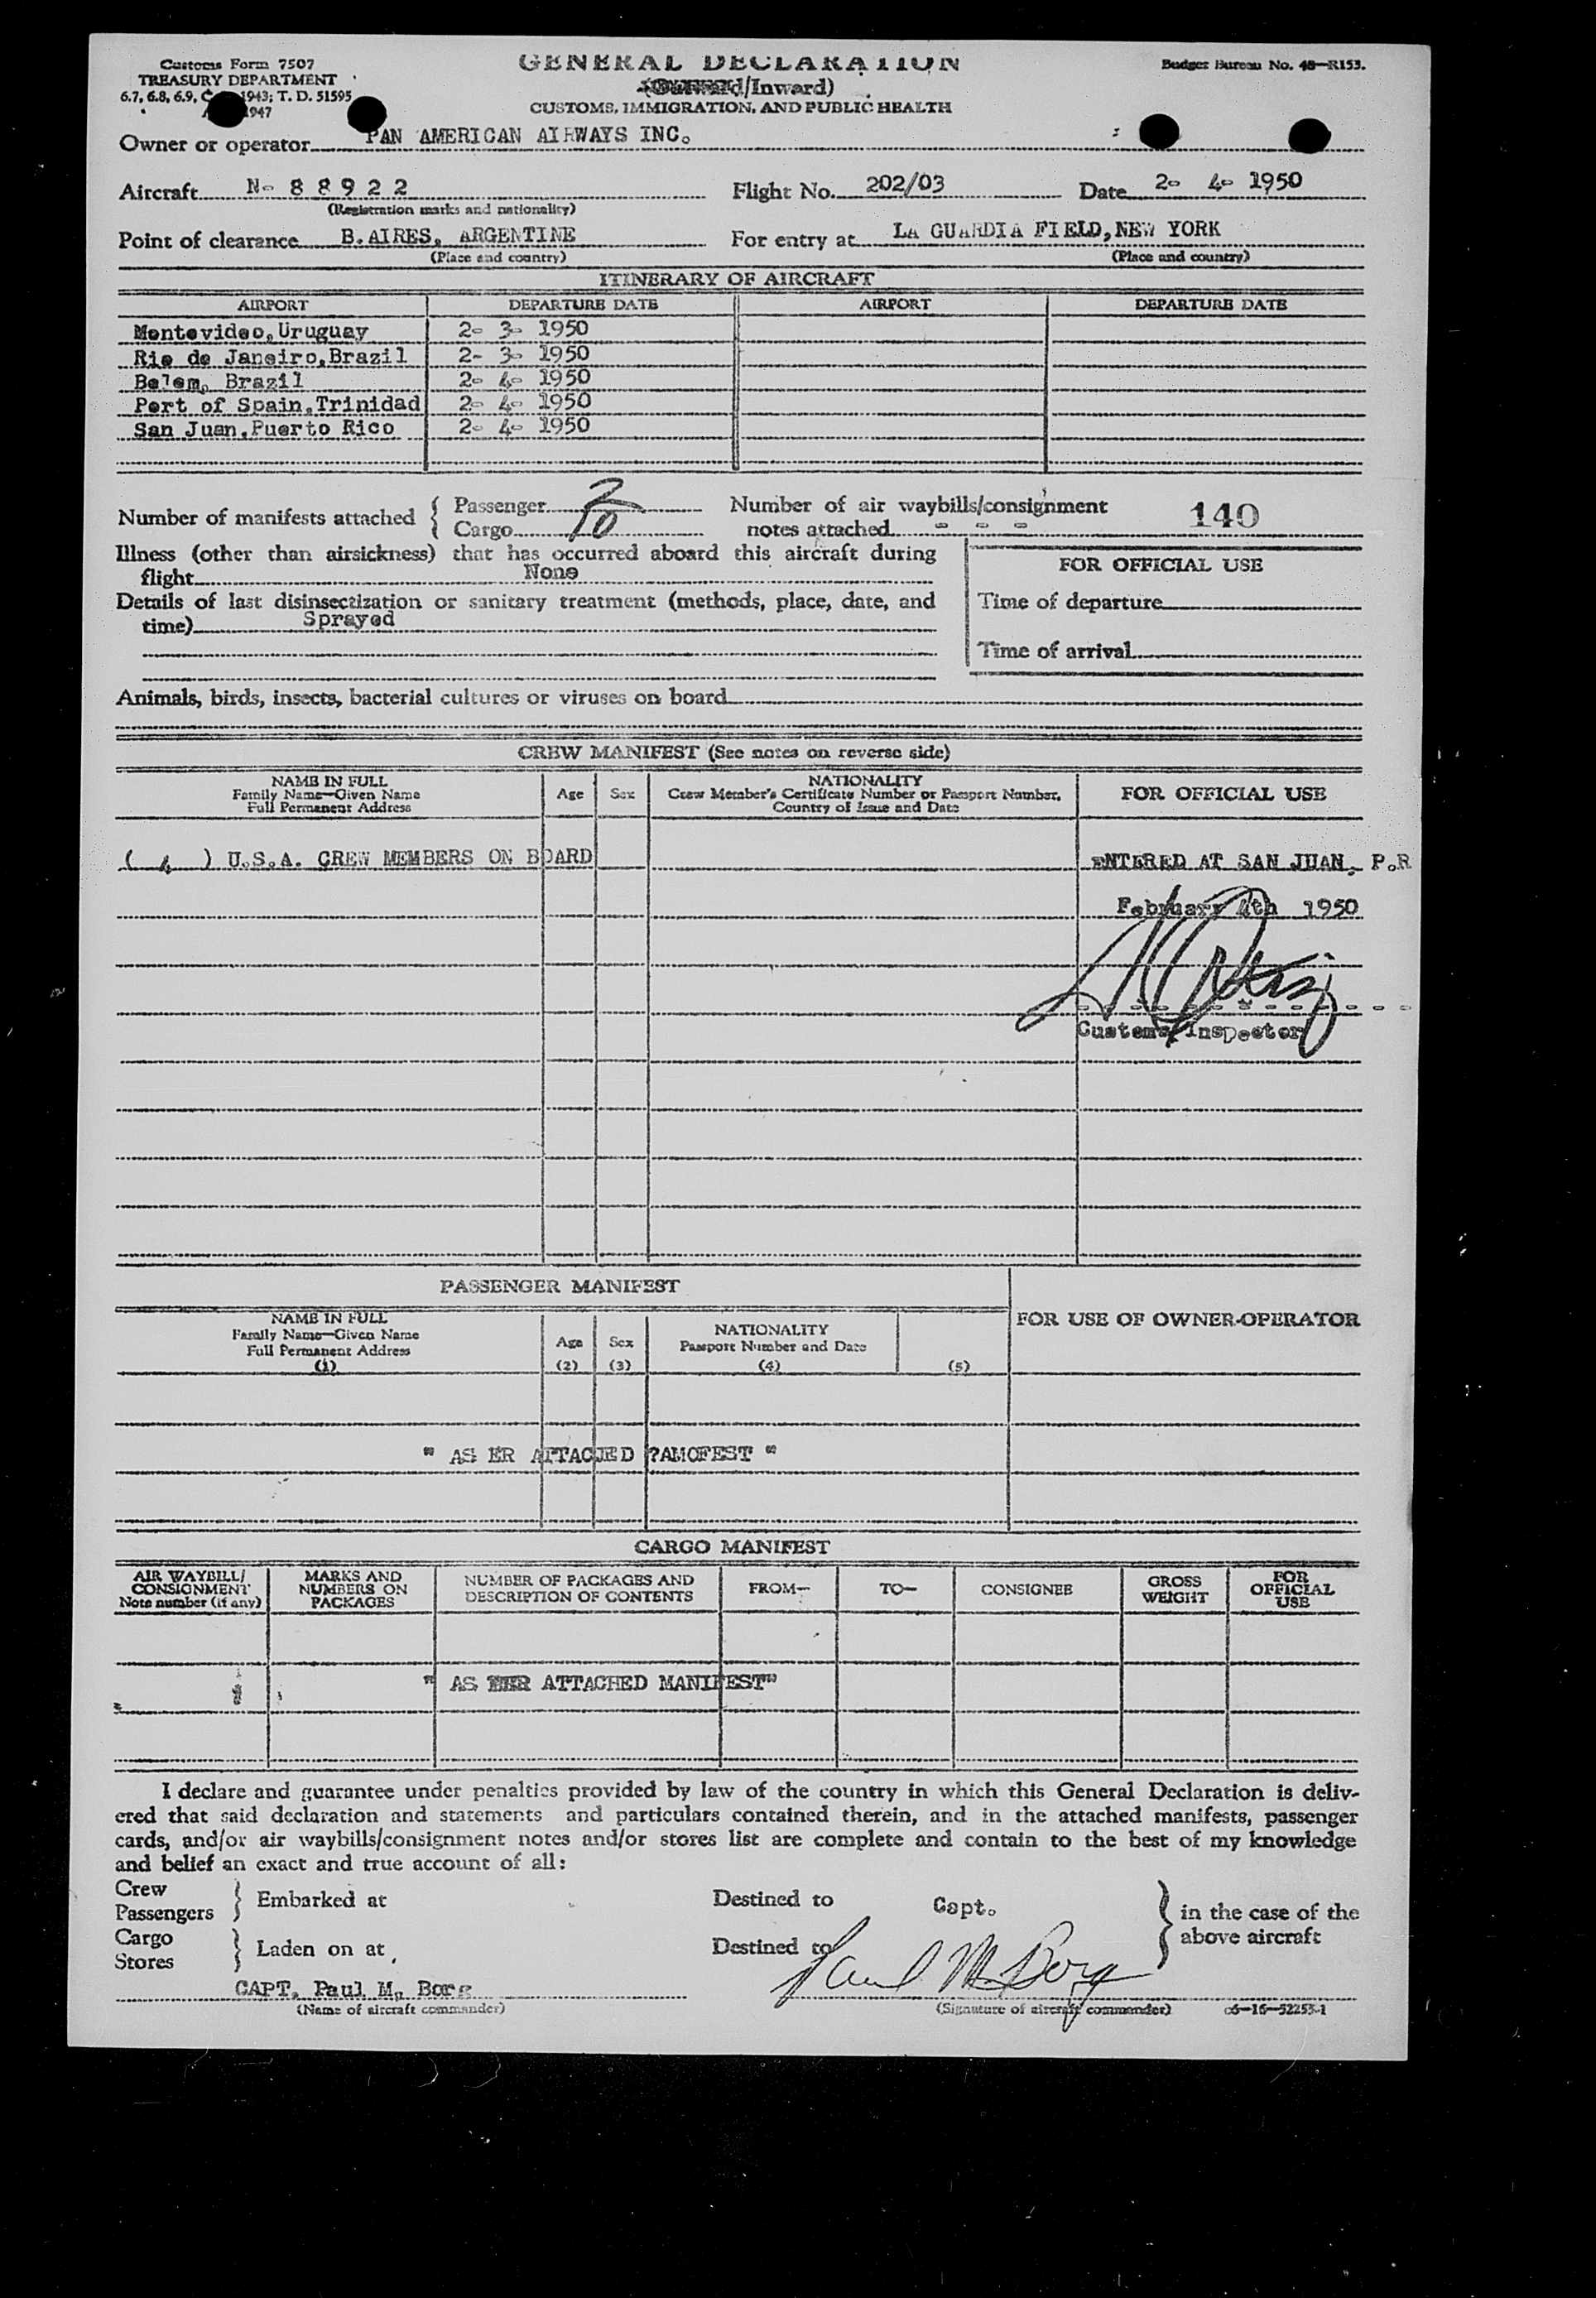 Customs Form 7507
TREASURY DEPARTMENT
6.7, 6.8, 6.9, 1943; T. D. 51595
1947
GENERAL DECLARATION
(Outward/Inward)
CUSTOMS, IMMIGRATION, AND PUBLIC HEALTH
Budget Bureau No. 48—R153.
Owner or operator PAN AMERICAN AIRWAYS INC.
Aircraft N- 8 8 9 2 2 Flight No. 202/03 Date 2- 4- 1950
(Registration marks and nationality)
Point of clearance B.AIRES, ARGENTINE For entry at LA GUARDIA FIELD,NEW YORK
(Place and country) (Place and country)
ITINERARY OF AIRCRAFT
AIRPORT DEPARTURE DATE AIRPORT DEPARTURE DATE
Montevideo,Uruguay 2- 3- 1950
Rio de Janeiro,Brazil 2- 3- 1950
Belem, Brazil 2- 4- 1950
Port of Spain,Trinidad 2- 4- 1950
San Juan,Puerto Rico 2- 4- 1950
Number of manifests attached { Passenger 2 Number of air waybills/consignment 140
Cargo 10 notes attached - - -
Illness (other than airsickness) that has occurred aboard this aircraft during
flight None
FOR OFFICIAL USE
Details of last disinsectization or sanitary treatment (methods, place, date, and
time) Sprayed
Time of departure
Time of arrival
Animals, birds, insects, bacterial cultures or viruses on board
CREW MANIFEST (See notes on reverse side)
NAME IN FULL
Family Name—Given Name
Full Permanent Address
Age Sex
NATIONALITY
Crew Member's Certificate Number or Passport Number,
Country of Issue and Date
FOR OFFICIAL USE
( 4 ) U.S.A. CREW MEMBERS ON BOARD ENTERED AT SAN JUAN, P.R
February 4th 1950
Customs Inspector
PASSENGER MANIFEST
NAME IN FULL
Family Name—Given Name
Full Permanent Address
(1)
Age
(2)
Sex
(3)
NATIONALITY
Passport Number and Date
(4)
(5)
FOR USE OF OWNER-OPERATOR
" AS ER ATTACJED ?AMOFEST "
CARGO MANIFEST
AIR WAYBILL/
CONSIGNMENT
Note number (if any)
MARKS AND
NUMBERS ON
PACKAGES
NUMBER OF PACKAGES AND
DESCRIPTION OF CONTENTS
FROM—
TO—
CONSIGNEE
GROSS
WEIGHT
FOR
OFFICIAL
USE
" AS PER ATTACHED MANIFEST"
I declare and guarantee under penalties provided by law of the country in which this General Declaration is deliv-
ered that said declaration and statements and particulars contained therein, and in the attached manifests, passenger
cards, and/or air waybills/consignment notes and/or stores list are complete and contain to the best of my knowledge
and belief an exact and true account of all:
Crew
Passengers } Embarked at Destined to Capt. } in the case of the
above aircraft
Cargo
Stores } Laden on at Destined to
Paul M Borg
CAPT. Paul M. Borg
(Name of aircraft commander) (Signature of aircraft commander) 06—16—52253-1